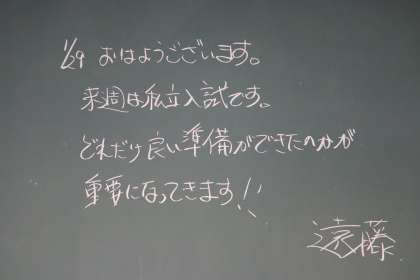 1/29 おはようございます。
来週は私立入試です。
どれだけ良い準備ができたのかが
重要になってきます!!
遠藤